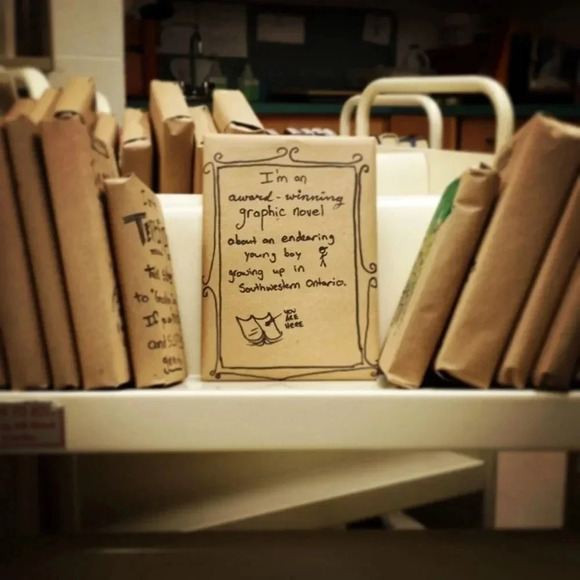 I'm an
award-winning
graphic novel
about an endearing
young boy
growing up in
Southwestern Ontario.
YOU
ARE
HERE
to
and